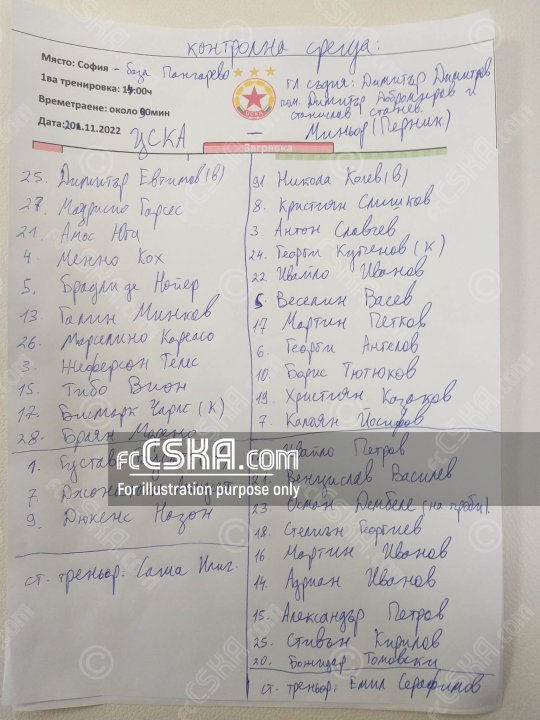 контролна среща:
Място: София - база Панчарево
1ва тренировка: 1 :00ч
Времетраене: около 90мин
Дата: .11.2022
гл. съдия: Димитър Димитров
пом. Димитър Добромиров и
Станислав Стачев
ЦСКА
-
Миньор (Перник)
Загрявка
25. Димитър Евтимов (в)
27 Маурисио Гарсес
21. Амос Юга
4. Менно Кох
5. Брадли де Нойер
13. Галин Минков
26. Марселино Кареасо
3. Жеферсон Телес
15. Тибо Вион
12. Бисмарк Чарлс (К)
28. Браян Морено
1. Густаво
7. Джонатан
9. Дюкенс Назон
ст. треньор: Саша Илич.
91 Никола Колев (в)
8. Кристиян Слишков
3. Антон Славчев
24. Георги Купенов (К)
22. Ивайло Иванов
5. Веселин Васев
17. Мартин Петков
6. Георги Ангелов
10. Борис Тютюков
19. Християн Казаков
7. Калоян Йосифов
Ивайло Петров
21. Венцислав Василев
23. Осман Дембеле (на проби).
18. Стелиън Георгиев
16 Мартин Иванов
14. Адриан Иванов
15. Александър Петров
25. Стивън Кирилов
20. Божидар Томовски
ст. треньор: Емил Серафимов
fcCSKA.com
For illustration purpose only